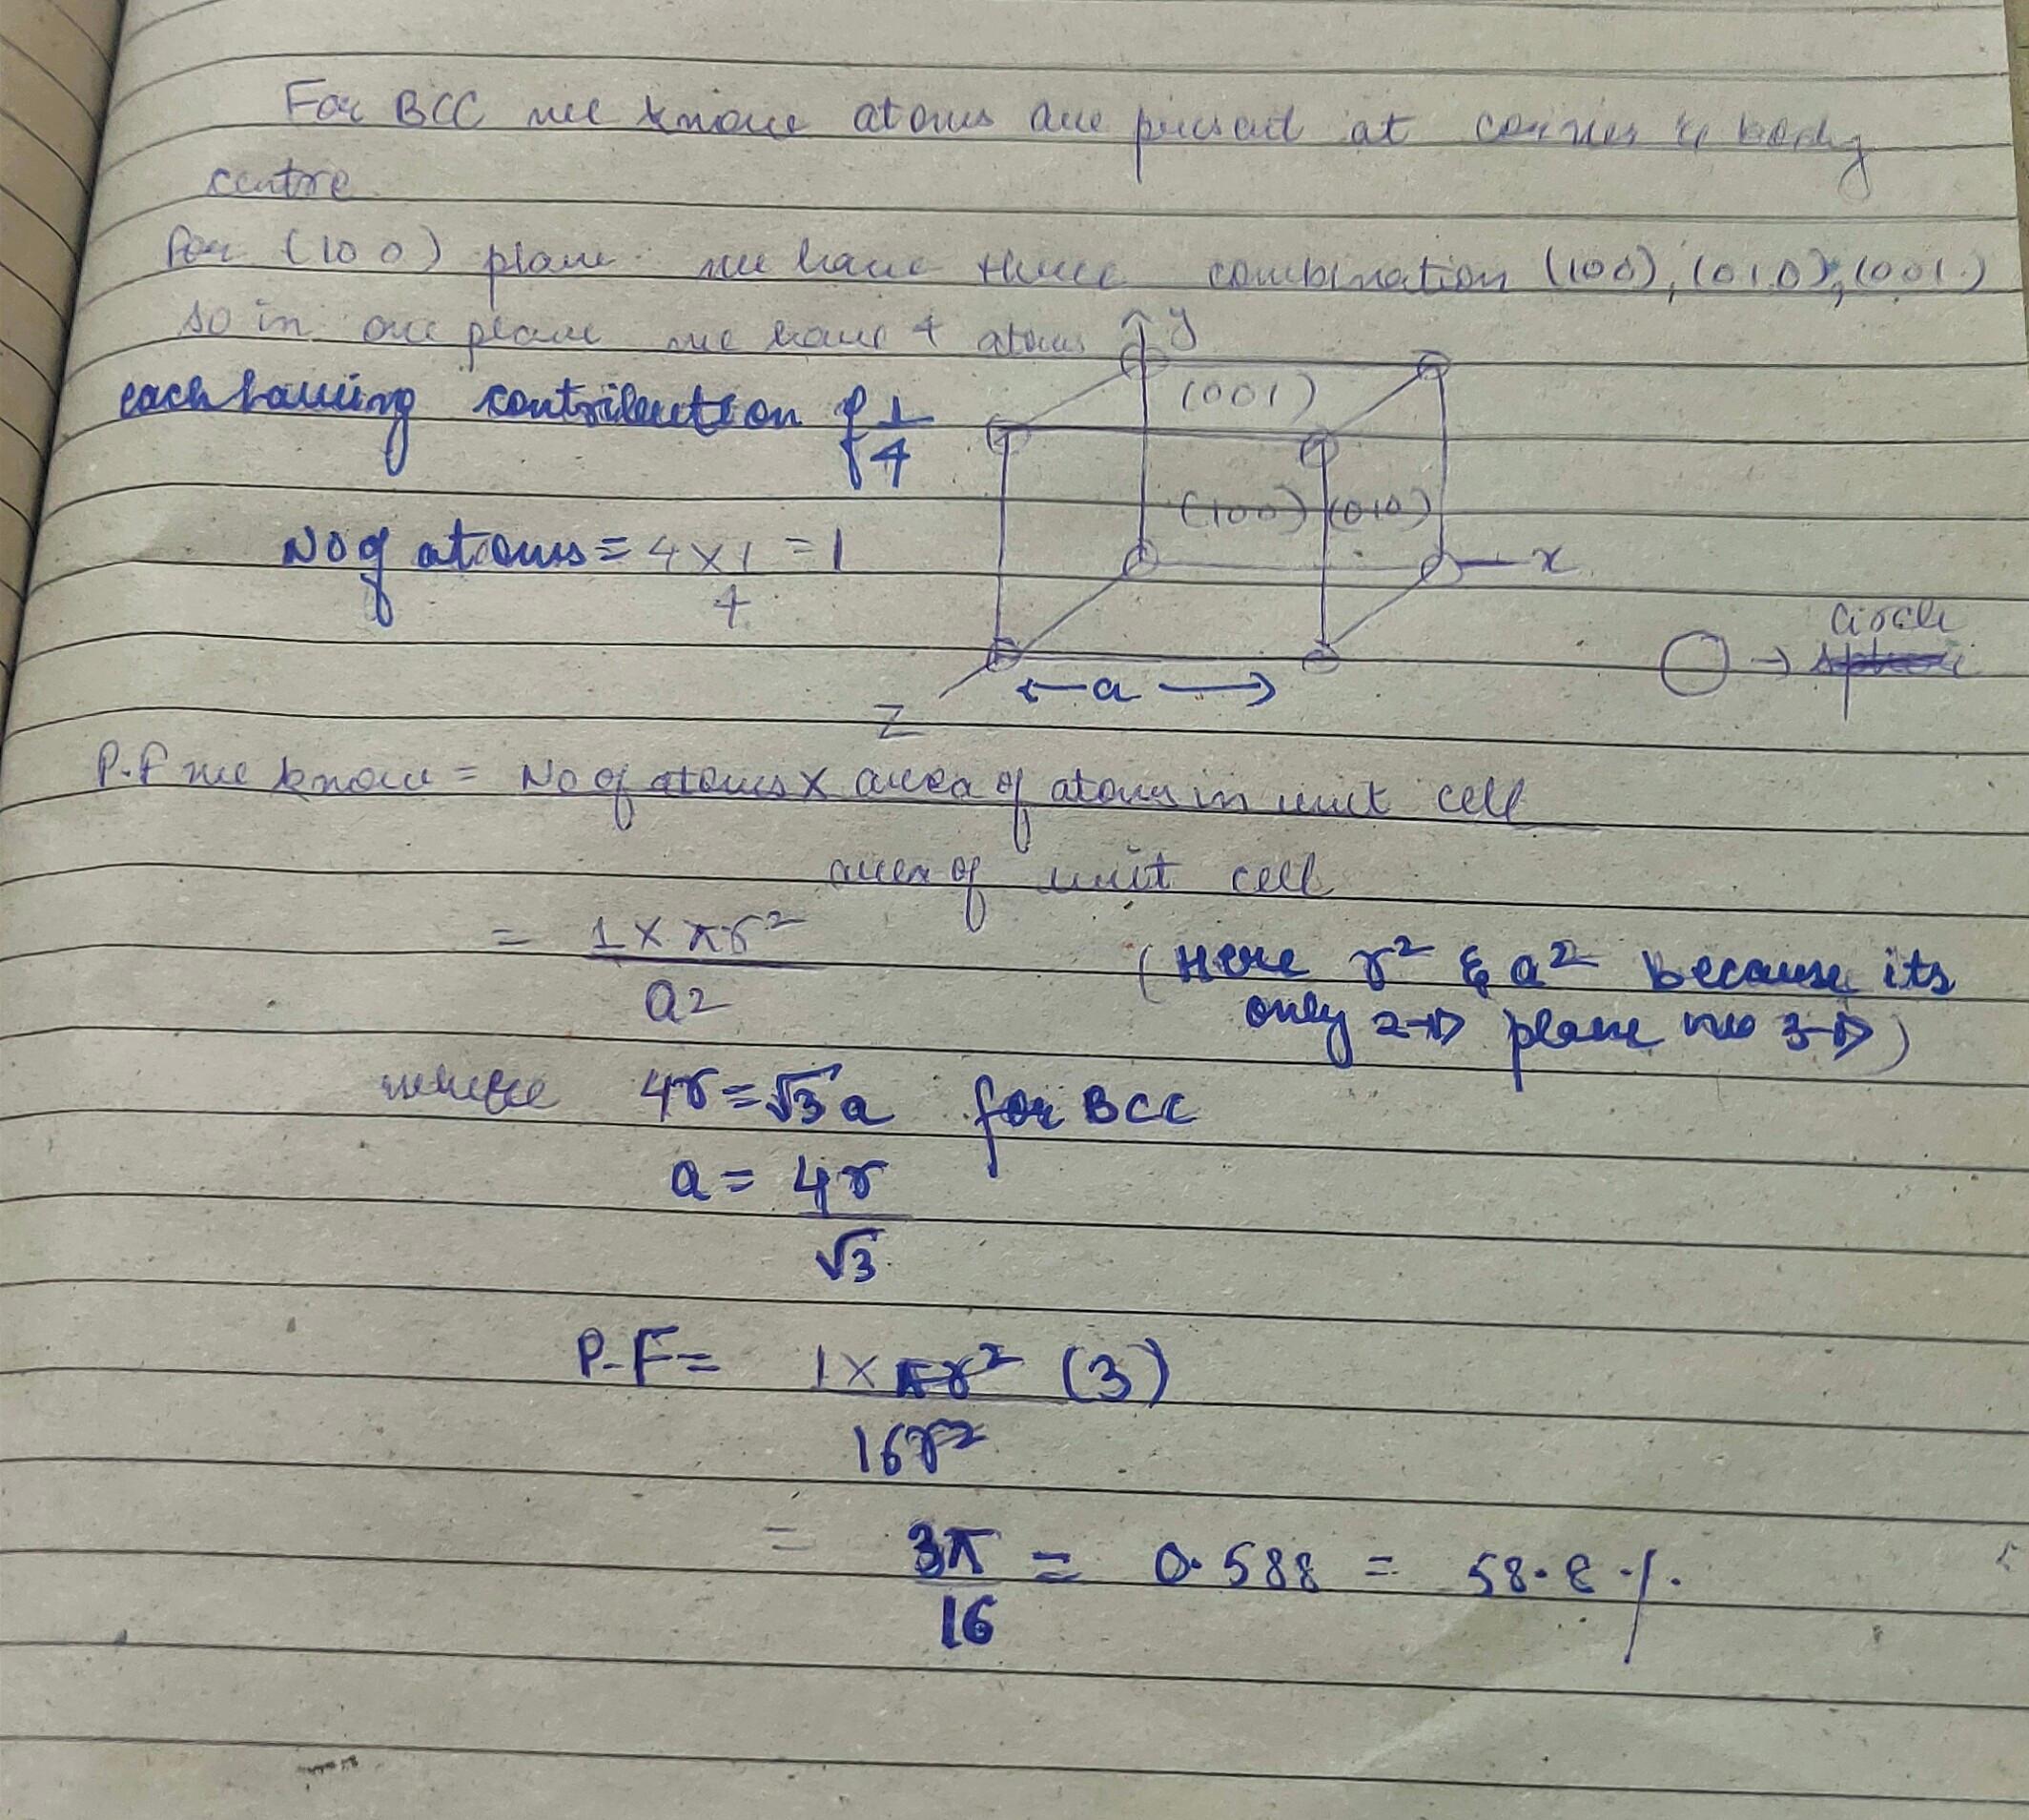 For BCC we know atoms are present at corner & body
centre
for (100) plane we have three combination (100), (010), (001)
so in one plane we have 4 atoms
each having contribution of 1/4
No of atoms = 4 x 1/4 = 1
y
(001)
(100) (010)
x
z
← a →
○ → circle
P.F we know = No of atoms x area of atoms in unit cell
area of unit cell
= 1 x πr² / a2
(Here r² & a² because its
only 2-D plane no 3-D)
where 4r = √3 a for BCC
a = 4r / √3
P-F = 1 x πr² (3) / 16r²
= 3π / 16 = 0.588 = 58.8 %.